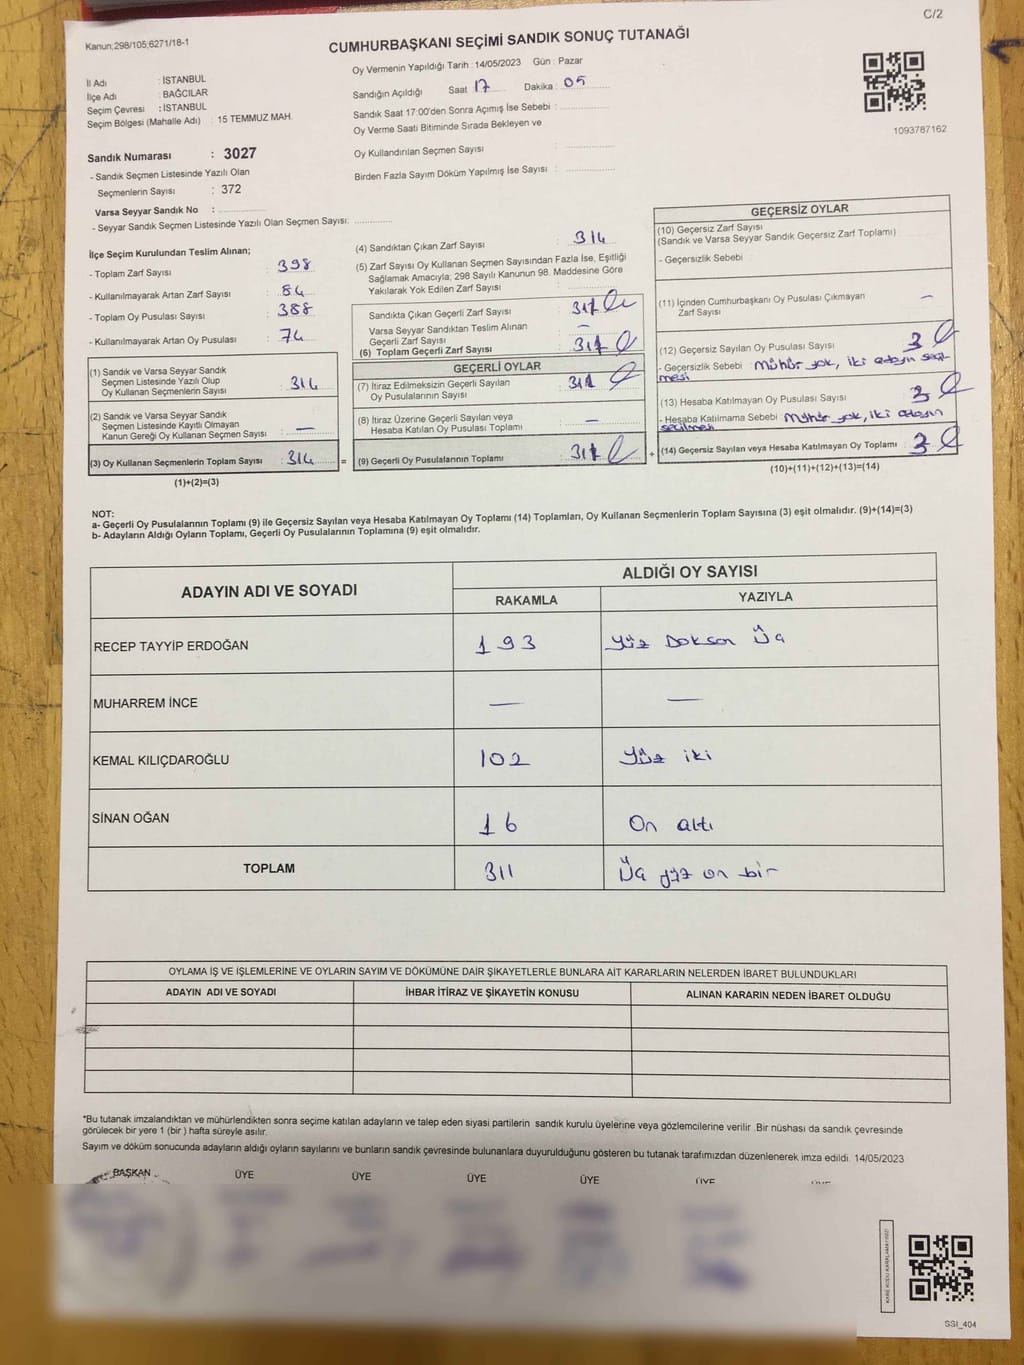 C/2
Kanun;298/105;6271/18-1
CUMHURBAŞKANI SEÇİMİ SANDIK SONUÇ TUTANAĞI
İl Adı : İSTANBUL
İlçe Adı : BAĞCILAR
Seçim Çevresi : İSTANBUL
Seçim Bölgesi (Mahalle Adı) : 15 TEMMUZ MAH.
Sandık Numarası : 3027
- Sandık Seçmen Listesinde Yazılı Olan
Seçmenlerin Sayısı : 372
Varsa Seyyar Sandık No :
- Seyyar Sandık Seçmen Listesinde Yazılı Olan Seçmen Sayısı:
Oy Vermenin Yapıldığı Tarih : 14/05/2023 Gün : Pazar
Sandığın Açıldığı Saat 17 Dakika : 05
Sandık Saat 17:00'den Sonra Açımış İse Sebebi :
Oy Verme Saati Bitiminde Sırada Bekleyen ve
Oy Kullandırılan Seçmen Sayısı :
Birden Fazla Sayım Döküm Yapılmış İse Sayısı :
1093787162
İlçe Seçim Kurulundan Teslim Alınan;
- Toplam Zarf Sayısı : 398
- Kullanılmayarak Artan Zarf Sayısı : 84
- Toplam Oy Pusulası Sayısı : 388
- Kullanılmayarak Artan Oy Pusulası : 74
(1) Sandık ve Varsa Seyyar Sandık
Seçmen Listesinde Yazılı Olup
Oy Kullanan Seçmenlerin Sayısı : 314
(2) Sandık ve Varsa Seyyar Sandık
Seçmen Listesinde Kayıtlı Olmayan
Kanun Gereği Oy Kullanan Seçmen Sayısı : —
(3) Oy Kullanan Seçmenlerin Toplam Sayısı : 314 =
(1)+(2)=(3)
(4) Sandıktan Çıkan Zarf Sayısı : 314
(5) Zarf Sayısı Oy Kullanan Seçmen Sayısından Fazla İse, Eşitliği
Sağlamak Amacıyla; 298 Sayılı Kanunun 98. Maddesine Göre
Yakılarak Yok Edilen Zarf Sayısı :
Sandıkta Çıkan Geçerli Zarf Sayısı :
Varsa Seyyar Sandıktan Teslim Alınan
Geçerli Zarf Sayısı : —
(6) Toplam Geçerli Zarf Sayısı :
GEÇERLİ OYLAR
(7) İtiraz Edilmeksizin Geçerli Sayılan
Oy Pusulalarının Sayısı : 311
(8) İtiraz Üzerine Geçerli Sayılan veya
Hesaba Katılan Oy Pusulası Toplamı : —
(9) Geçerli Oy Pusulalarının Toplamı : 311 +
GEÇERSİZ OYLAR
(10) Geçersiz Zarf Sayısı
(Sandık ve Varsa Seyyar Sandık Geçersiz Zarf Toplamı)
- Geçersizlik Sebebi
(11) İçinden Cumhurbaşkanı Oy Pusulası Çıkmayan
Zarf Sayısı —
(12) Geçersiz Sayılan Oy Pusulası Sayısı : 3
- Geçersizlik Sebebi : Mühür yok, iki adayın seçil-
mesi
(13) Hesaba Katılmayan Oy Pusulası Sayısı : 3
- Hesaba Katılmama Sebebi : Mühür yok, iki adayın
seçilmesi
(14) Geçersiz Sayılan veya Hesaba Katılmayan Oy Toplamı : 3
(10)+(11)+(12)+(13)=(14)
NOT:
a- Geçerli Oy Pusulalarının Toplamı (9) ile Geçersiz Sayılan veya Hesaba Katılmayan Oy Toplamı (14) Toplamları, Oy Kullanan Seçmenlerin Toplam Sayısına (3) eşit olmalıdır. (9)+(14)=(3)
b- Adayların Aldığı Oyların Toplamı, Geçerli Oy Pusulalarının Toplamına (9) eşit olmalıdır.
ADAYIN ADI VE SOYADI
ALDIĞI OY SAYISI
RAKAMLA YAZIYLA
RECEP TAYYİP ERDOĞAN 193 Yüz Doksan Üç
MUHARREM İNCE — —
KEMAL KILIÇDAROĞLU 102 Yüz iki
SİNAN OĞAN 16 On altı
TOPLAM 311 Üç yüz on bir
OYLAMA İŞ VE İŞLEMLERİNE VE OYLARIN SAYIM VE DÖKÜMÜNE DAİR ŞİKAYETLERLE BUNLARA AİT KARARLARIN NELERDEN İBARET BULUNDUKLARI
ADAYIN ADI VE SOYADI İHBAR İTİRAZ VE ŞİKAYETİN KONUSU ALINAN KARARIN NEDEN İBARET OLDUĞU
*Bu tutanak imzalandıktan ve mühürlendikten sonra seçime katılan adayların ve talep eden siyasi partilerin sandık kurulu üyelerine veya gözlemcilerine verilir .Bir nüshası da sandık çevresinde
görülecek bir yere 1 (bir ) hafta süreyle asılır.
Sayım ve döküm sonucunda adayların aldığı oyların sayılarını ve bunların sandık çevresinde bulunanlara duyurulduğunu gösteren bu tutanak tarafımızdan düzenlenerek imza edildi. 14/05/2023
BAŞKAN ÜYE ÜYE ÜYE ÜYE ÜYE
SSI_404